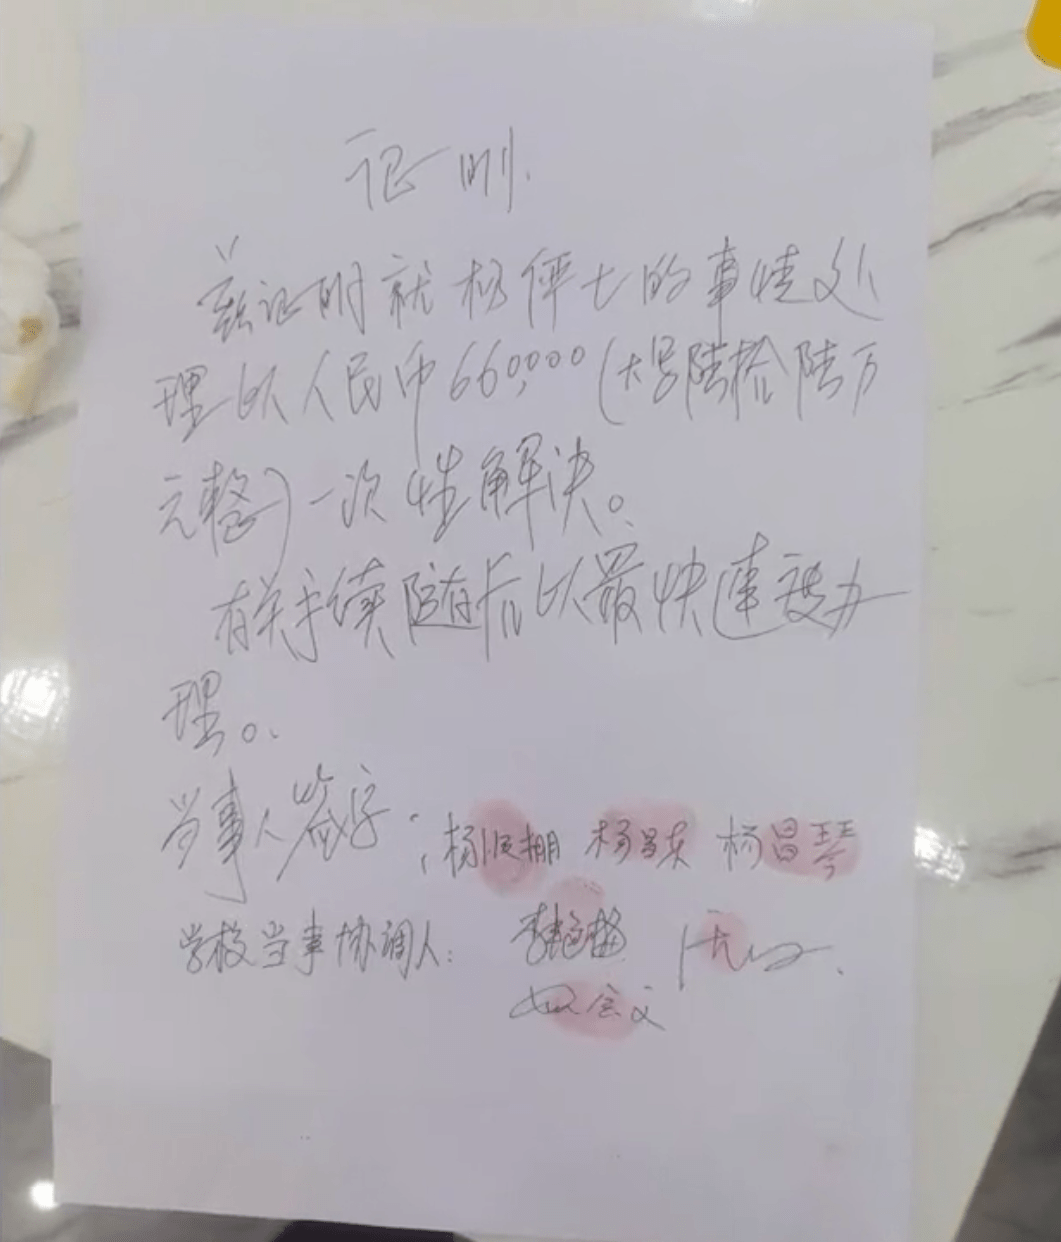 证明
兹证明就杨伊七的事情处
理以人民币660,000(大写陆拾陆万
元整)一次性解决。
有关手续随后以最快速度办
理。
当事人签字: 杨 杨昌东 杨昌琴
学校当事协调人: